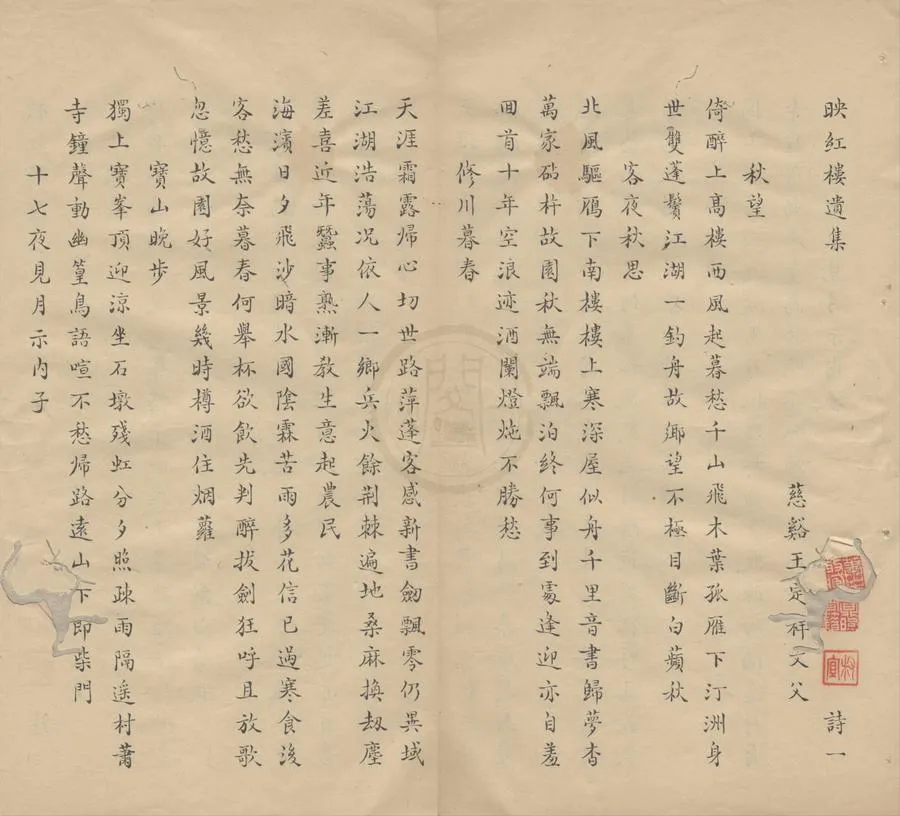 映紅樓遺集 詩一
慈谿王定祥文父
秋望
倚醉上高樓西風起暮愁千山飛木葉孤雁下汀洲身
世雙蓬鬢江湖一釣舟故鄉望不極目斷白蘋秋
客夜秋思
北風驅鴈下南樓樓上寒深屋似舟千里音書歸夢杳
萬家砧杵故園秋無端飄泊終何事到處逢迎亦自羞
回首十年空浪迹酒闌燈灺不勝愁
修川暮春
天涯霜露歸心切世路萍蓬客感新書劒飄零仍異域
江湖浩蕩况依人一鄉兵火餘荆棘遍地桑麻換刼塵
差喜近年蠶事熟漸教生意起農民
海濱日夕飛沙暗水國陰霖苦雨多花信已過寒食後
客愁無奈暮春何舉杯欲飲先判醉拔劍狂呼且放歌
忽憶故園好風景幾時樽酒住烟蘿
寶山晚步
獨上寶峯頂迎涼坐石墩殘虹分夕照疎雨隔遥村蕭
寺鐘聲動幽篁鳥語喧不愁歸路遠山下即柴門
十七夜見月示内子